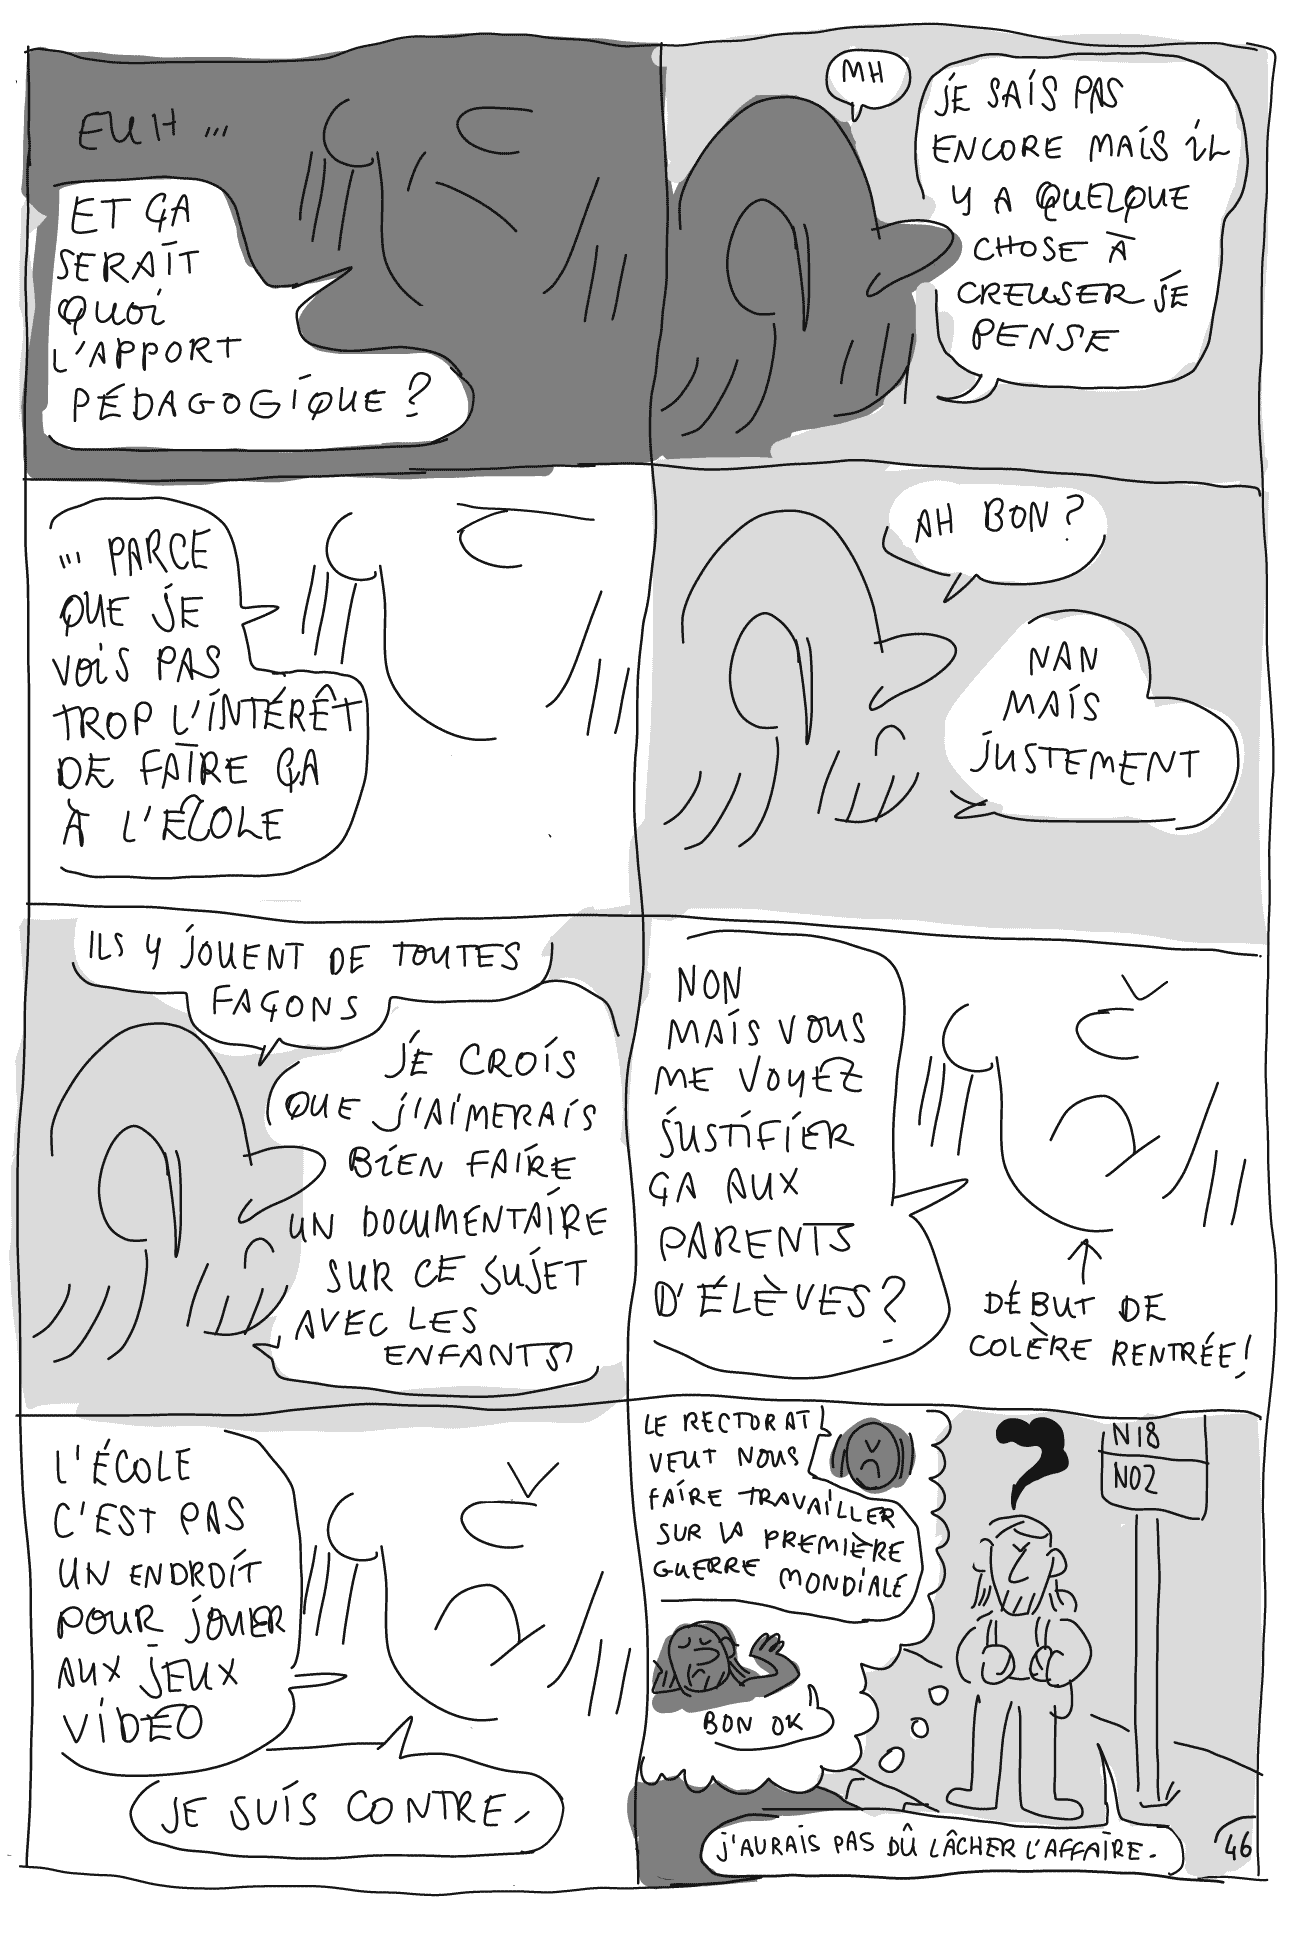 EUH ...
ET ÇA
SERAIT
QUOI
L'APPORT
PÉDAGOGIQUE ?
MH
JE SAIS PAS
ENCORE MAIS IL
Y A QUELQUE
CHOSE À
CREUSER JE
PENSE
... PARCE
QUE JE
VOIS PAS
TROP L'INTÉRÊT
DE FAIRE ÇA
À L'ÉCOLE
AH BON ?
NAN
MAIS
JUSTEMENT
ILS Y JOUENT DE TOUTES
FAÇONS
JE CROIS
QUE J'AIMERAIS
BIEN FAIRE
UN DOCUMENTAIRE
SUR CE SUJET
AVEC LES
ENFANTS
NON
MAIS VOUS
ME VOYEZ
JUSTIFIER
ÇA AUX
PARENTS
D'ÉLÈVES ?
DÉBUT DE
COLÈRE RENTRÉE !
L'ÉCOLE
C'EST PAS
UN ENDROIT
POUR JOUER
AUX JEUX
VIDÉO
JE SUIS CONTRE.
LE RECTORAT
VEUT NOUS
FAIRE TRAVAILLER
SUR LA PREMIÈRE
GUERRE MONDIALE
BON OK
N18
N02
J'AURAIS PAS DÛ LÂCHER L'AFFAIRE.
46